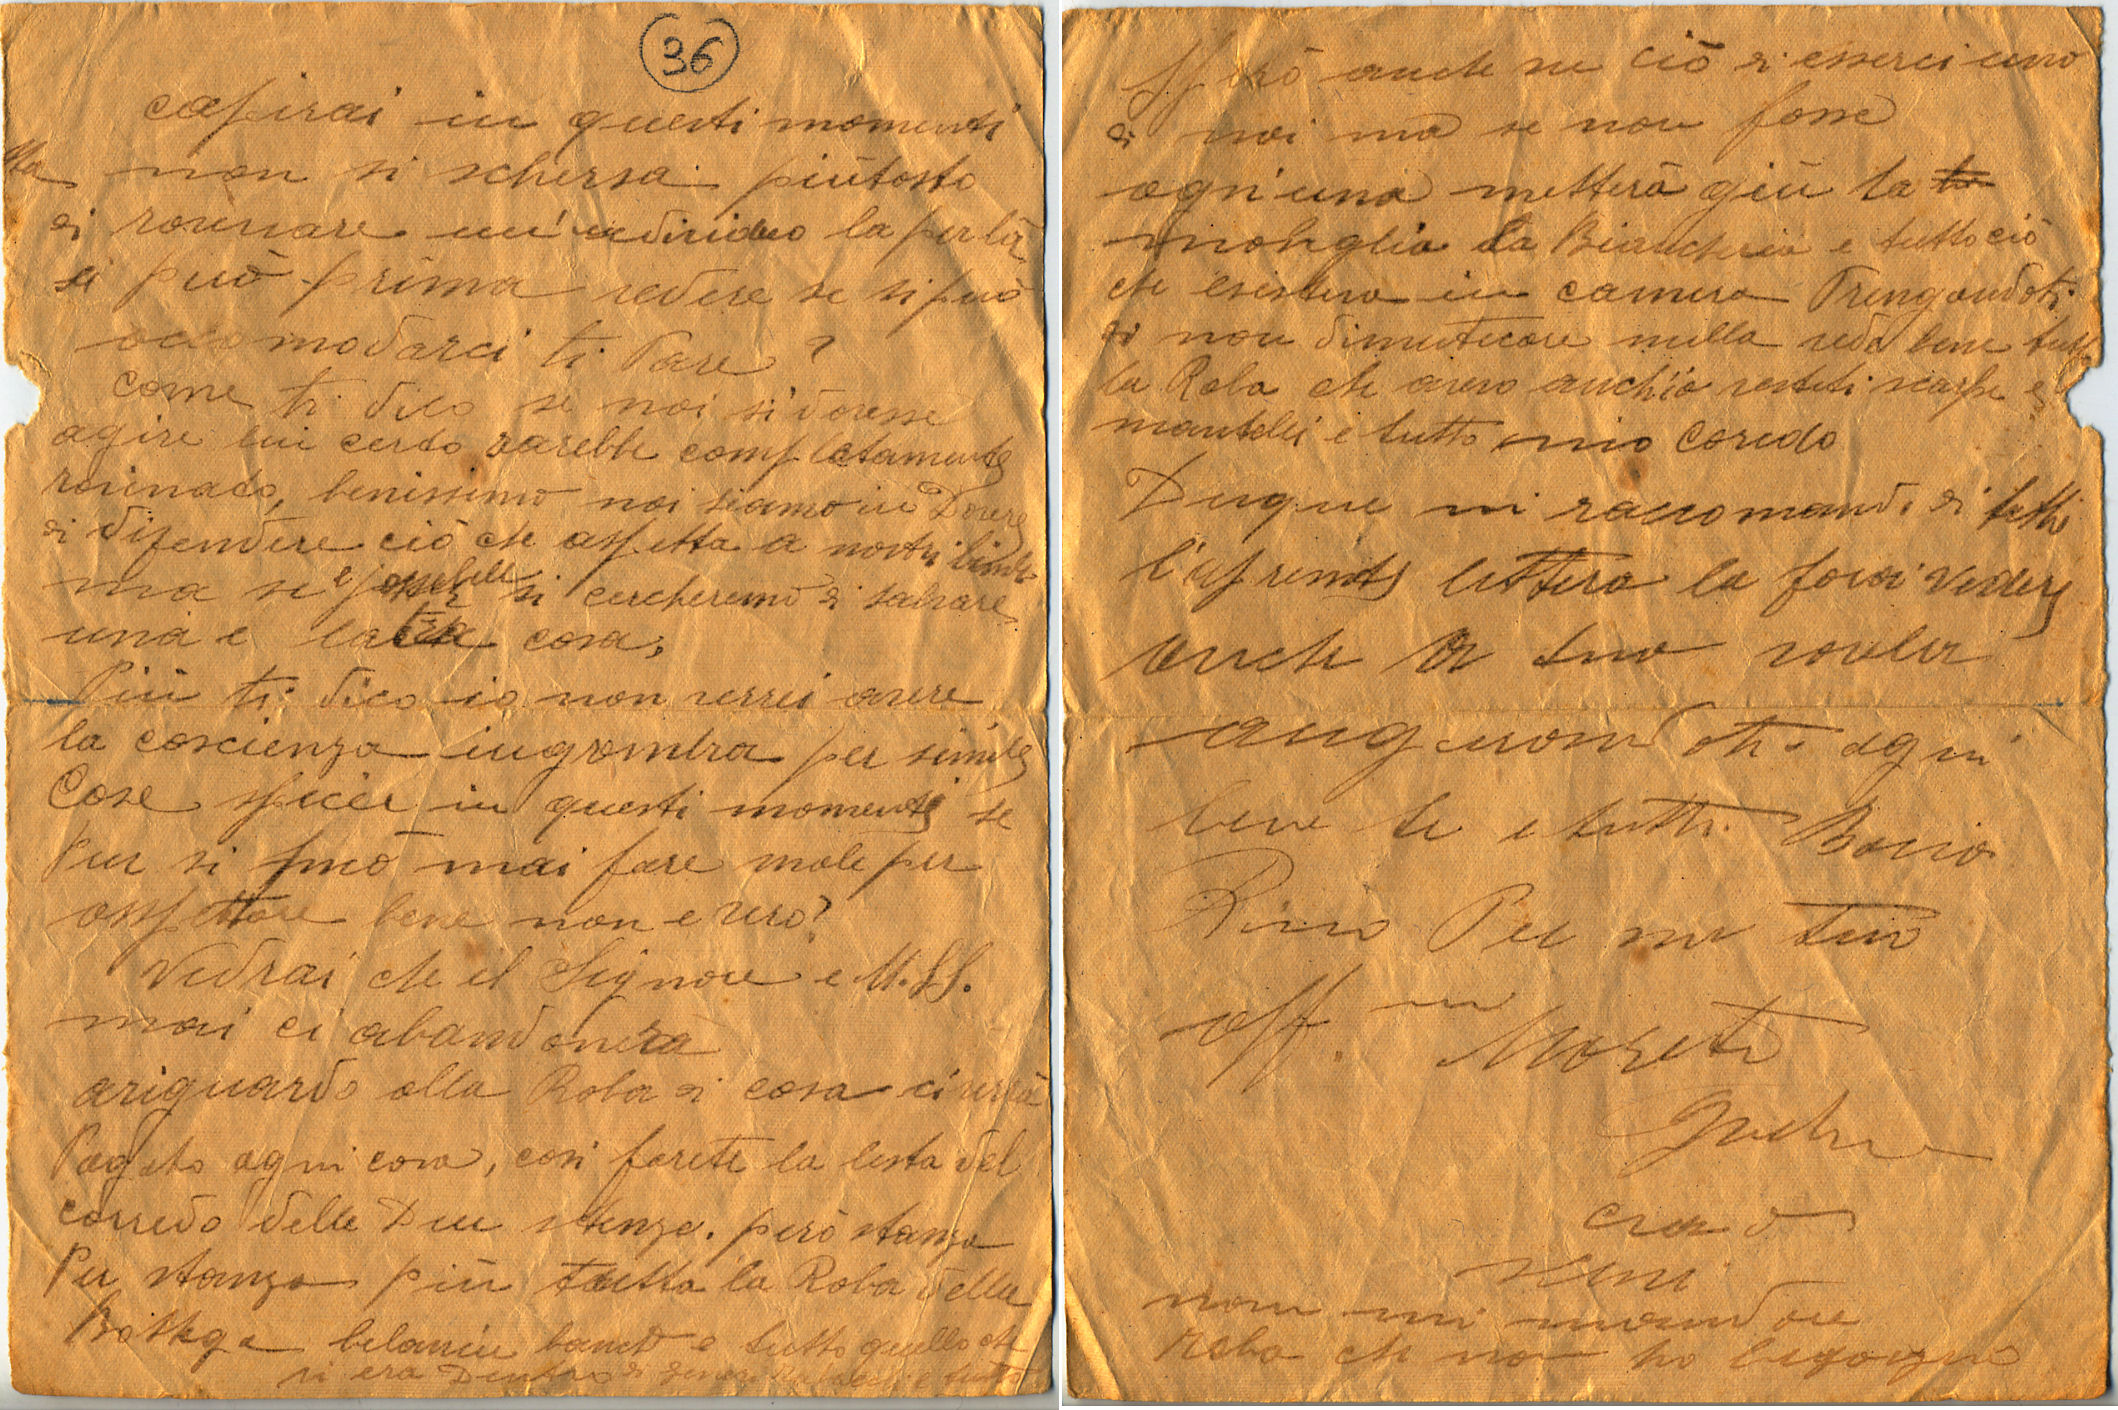 36
capirai in questi momenti
Ma non si schersa piùtosto
di rovinare un'individuo la per là
si può prima vedere se si può
accomodarci ti Pare?
come ti dico se noi si dovesse
agire lui certo sarebbe completamente
rovinato, benissimo noi siamo in Dovere
di difendere ciò che aspetta a nostri bimbi
ma se è possibile si cercheremo di salvare
una e laltra cosa,
Più ti dico io non verrei avere
la coscienza ingrombra per simile
Cose specie in questi momenti se
Pur si può mai fare male per
aspettare bene non e vero?
Vedrai che il Signore e M.SS.
mai ci abandonerà
ariguardo alla Roba di casa ci verrà
Pagato ogni cosa, così farete la lista del
corredo delle Due stenze. però stanza
Per stanza più tutta la Roba della
Bottega belancie banco e tutto quello che
vi era Dentro di generi e tutto
Sperò anche su ciò di esserci uno
di noi ma se non fosse
ogni'uno metterà giù la
mobiglia la Biancheria e tutto ciò
che esisteva in camera Pregandoti
di non dimenticare nulla vedi bene tutta
la Roba che avevo anch'io vestiti scarpe e
mantelli e tutto mio coredo
Duque mi raccomando di tutto
l'aprente lettera la farai vedere
anche a suo
augurandoti ogni
bene te e tutti Bacio
Rino Per me tuo
aff. mo
non mi mandare
Roba che non ho bisogno